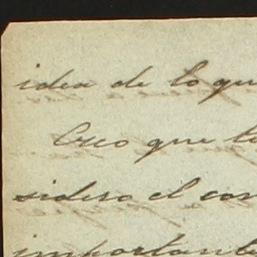 idea de lo que
Creo que te
sidero el con
importante